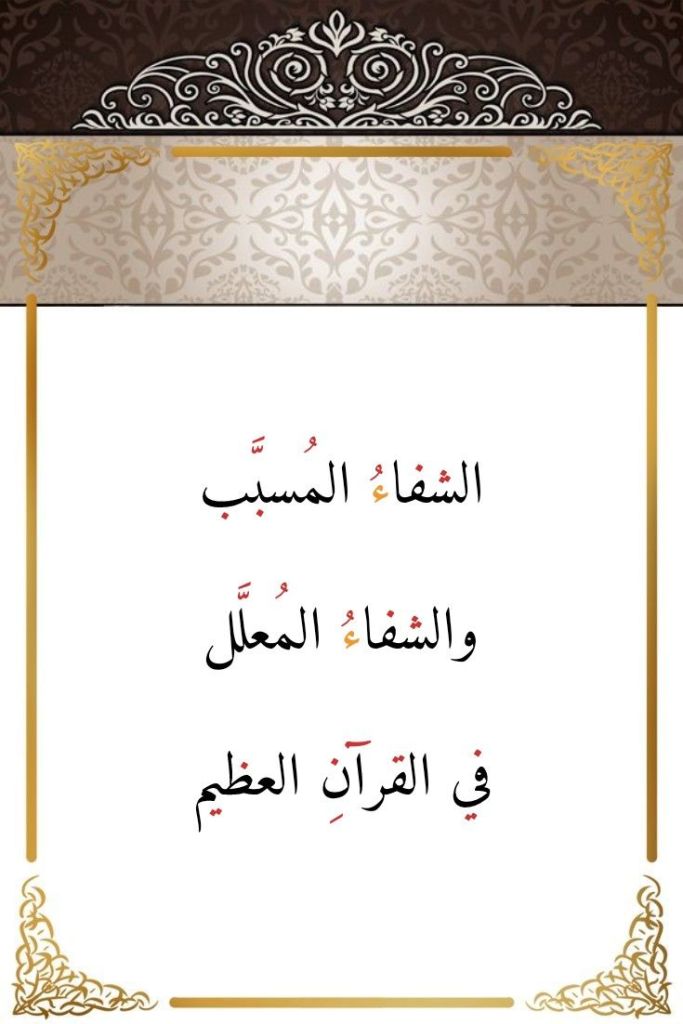 الشفاءُ المُسبَّب
والشفاءُ المُعلَّل
في القرآنِ العظيم